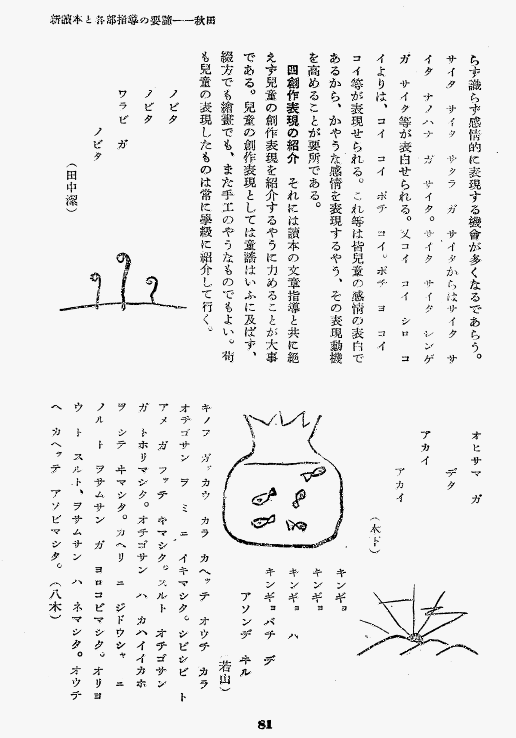 新讀本と各部指導の要諦——秋田
らず識らず感情的に表現する機會が多くなるであらう。
サイタ サイタ サクラ ガ サイタからはサイタ サ
イタ ナノハナ ガ サイタ。サイタ サイタ レンゲ
ガ サイタ等が表白せられる。又コイ コイ シロ コ
イよりは、コイ コイ ポチ コイ。ポチ ヨ コイ
コイ等が表現せられる。これ等は皆兒童の感情の表白で
あるから、かやうな感情を表現するやう、その表現動機
を高めることが要所である。
四創作表現の紹介 それには讀本の文章指導と共に絶
えず兒童の創作表現を紹介するやうに力めることが大事
である。兒童の創作表現としては童謠はいふに及ばず、
綴方でも繪畫でも、また手工のやうなものでもよい。苟
も兒童の表現したものは常に學級に紹介して行く。
ノビタ
ノビタ
ワラビ ガ
ノビタ
(田中潔)
オヒサマ ガ
デタ
アカイ
アカイ
(木下)
キンギョ
キンギョ
キンギョ ハ
キンギョバチ デ
アソンデ ヰル
(若山)
キノフ ガッカウ カラ カヘッテ オウチ カラ
オチゴサン ヲ ミ ニ イキマシタ。シビシビ ト
アメ ガ フッテ キマシタ。スルト オチゴサン
ガ トホリマシタ。オチゴサン ハ カハイイカホ
ヲ シテ ヰマシタ。カヘリ ニ ジドウシャ ニ
ノルト ヲサムサン ガ ヨロコビマシタ。オリヨ
ウ ト スルト、ヲサムサン ハ ネマシタ。オウチ
ヘ カヘッテ アソビマシタ。(八木)
81